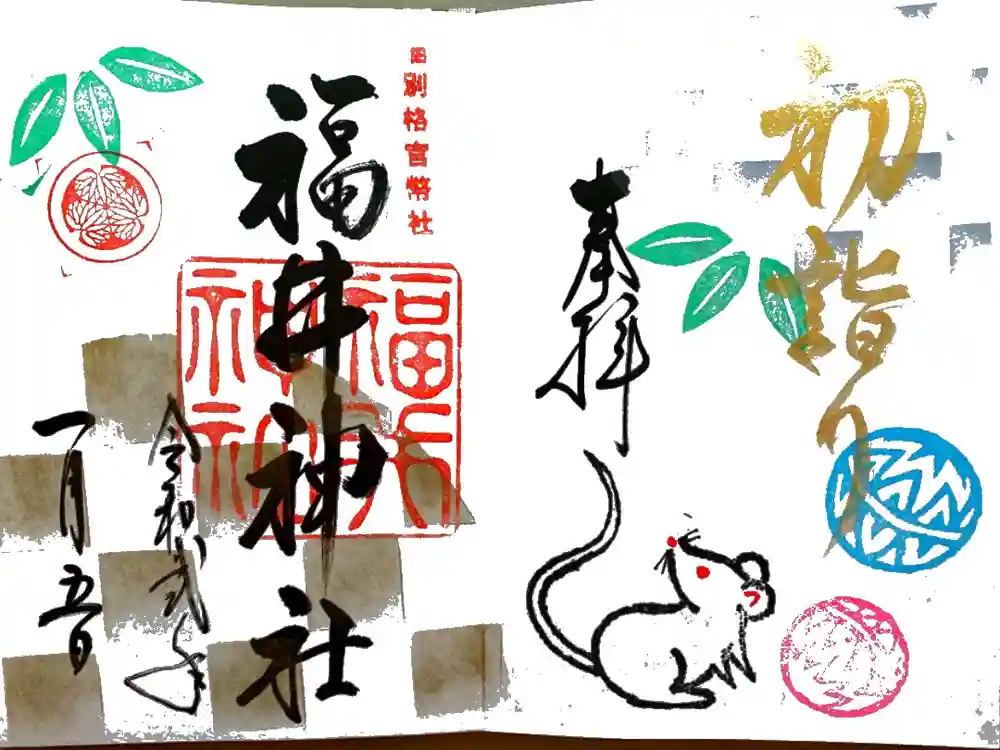 初詣り
奉拝
旧別格官幣社
福井神社
令和弐年
一月五日